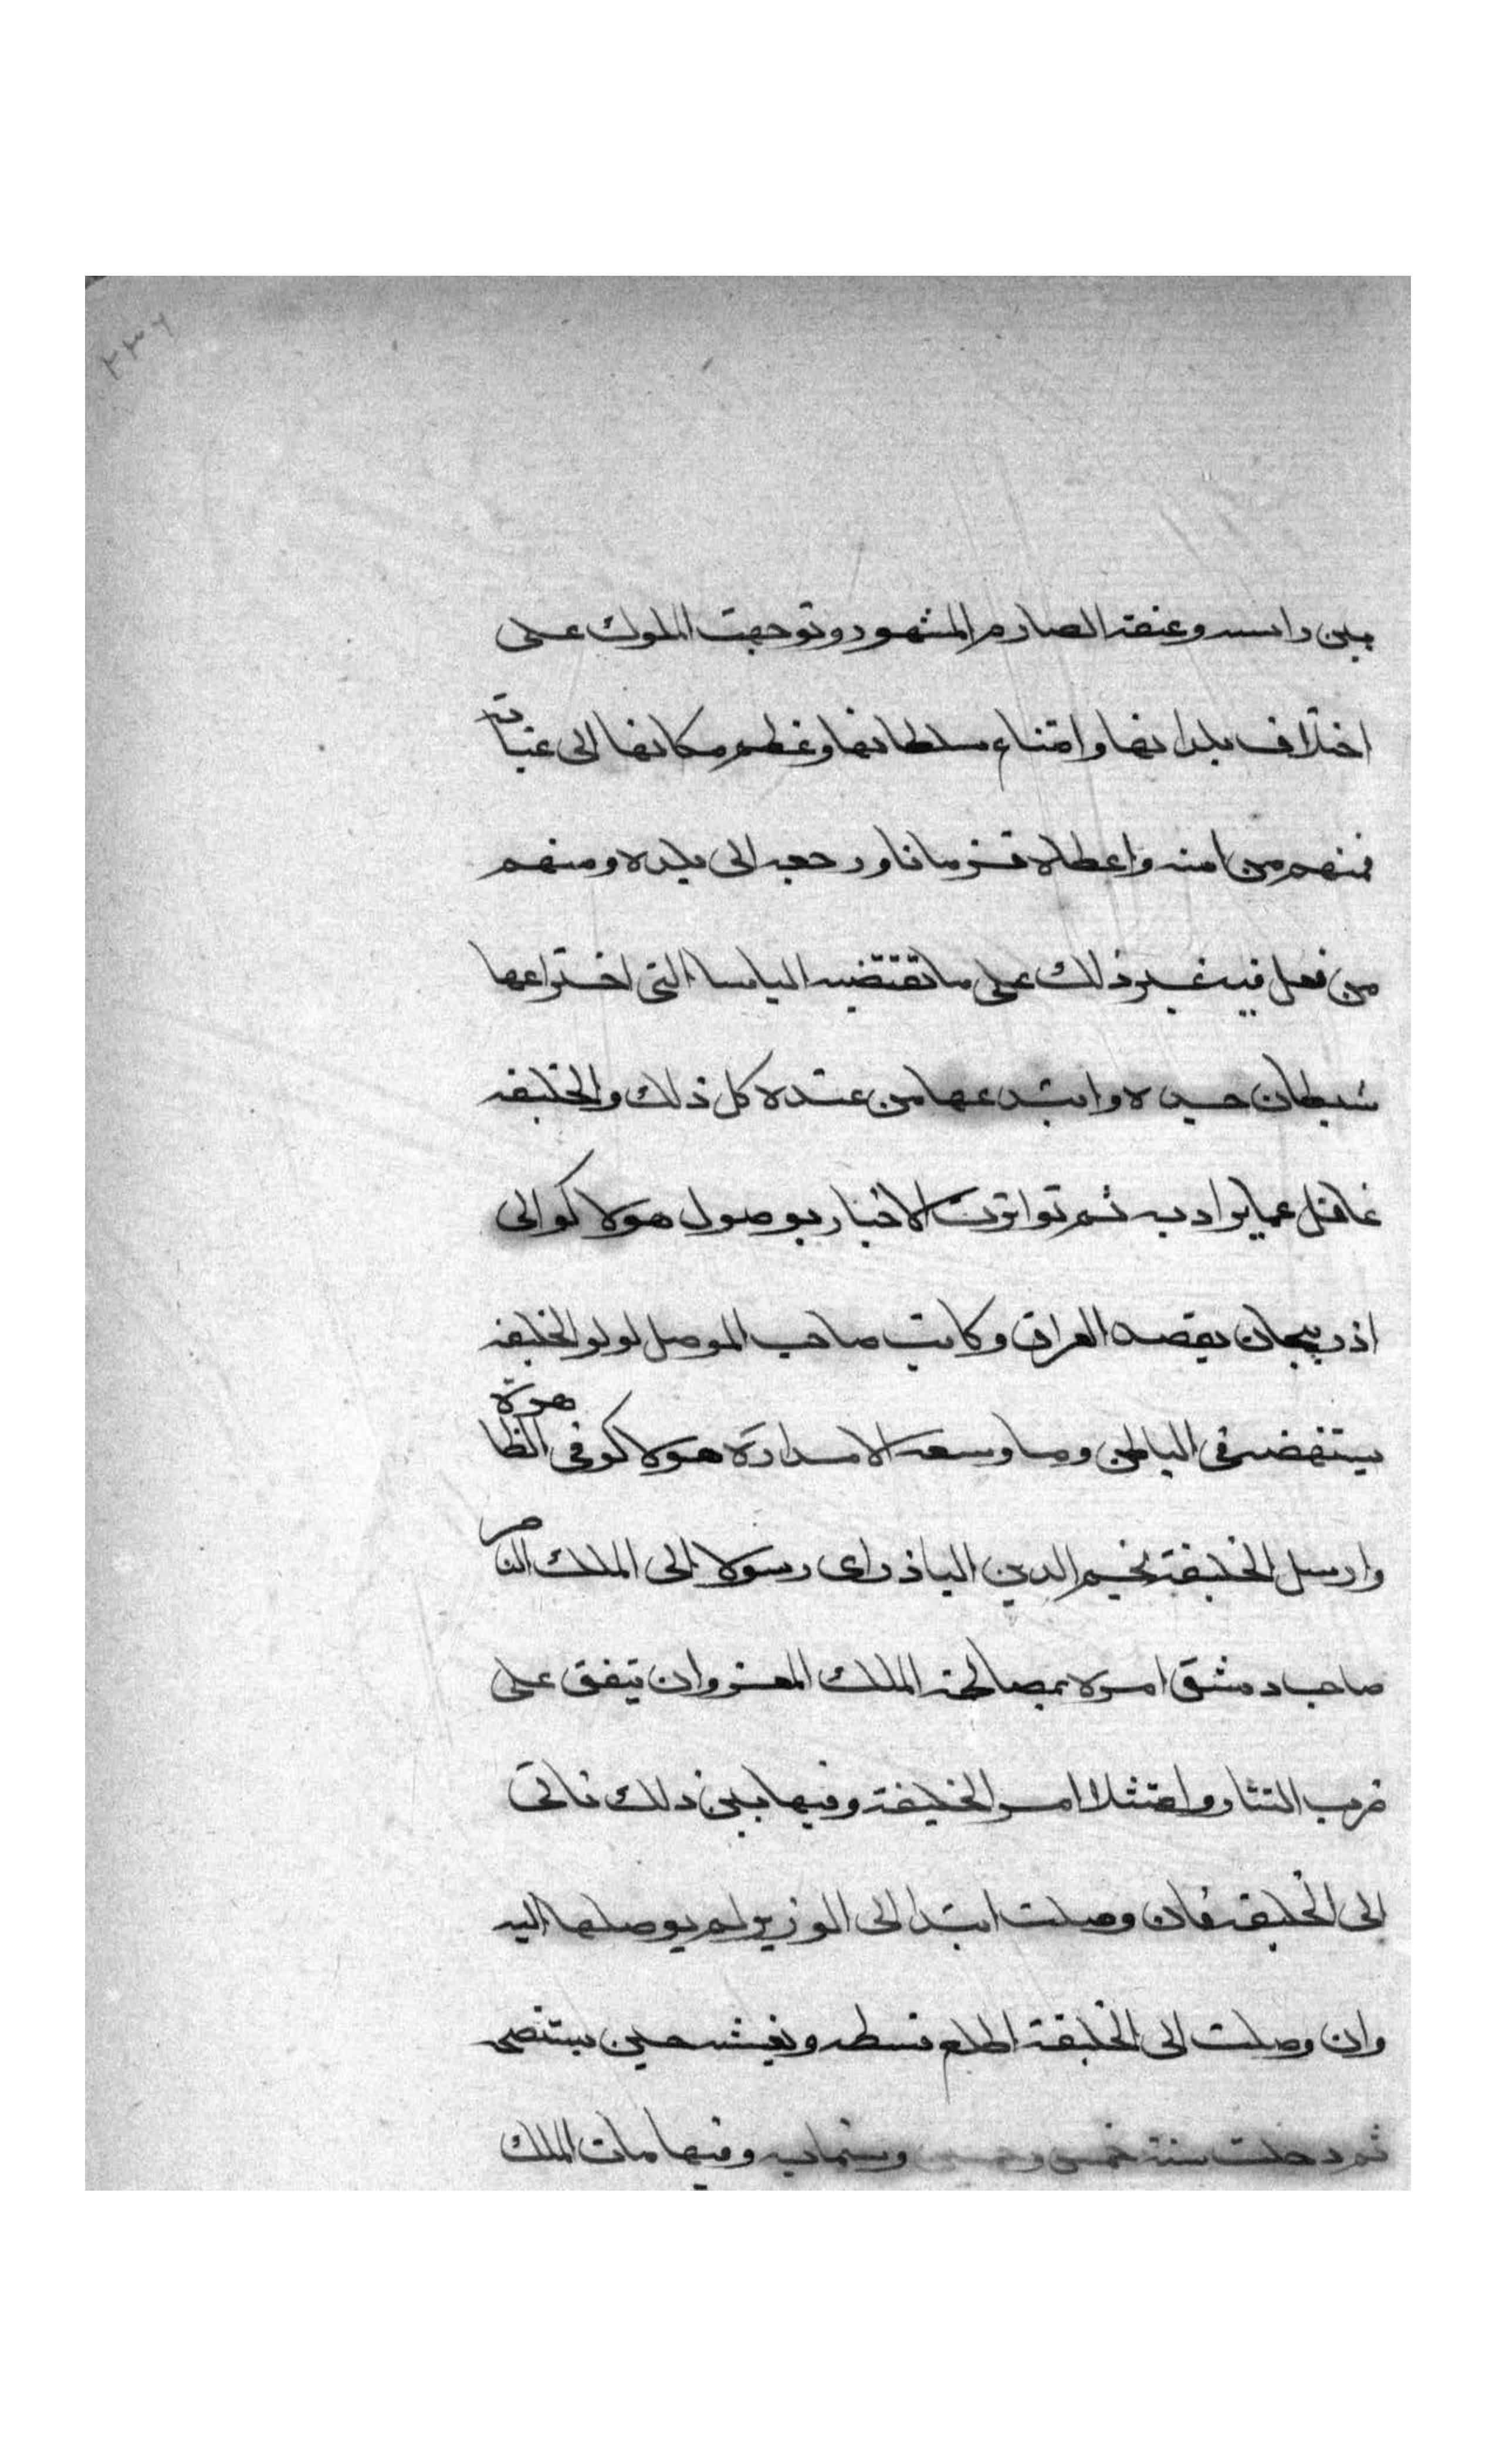 ٢٣٦
بين راسه وعنقه الصارم المشهور وتوجهت الملوك على
اختلاف بلدانها وامتناع سلطانها وعظم مكانها الى عتباته
فمنهم من امنه واعطاه فرمانا ورجعه الى بلده ومنهم
من فعل فيه غير ذلك على ما تقتضيه الياسا التى اخترعها
شيطان وابتدعها من عنده كل ذلك والخليفه
غافل عما يراد به ثم تواترت الاخبار بوصول هولاكو الى
اذربيجان بقصد العراق وكاتب صاحب الموصل لولو الخليفه
يستنهضه فى الباطن وما وسعه الا مداراة هولاكو فى الظاهرة
وارسل الخليفة نجم الدين الباذراى رسولا الى الملك الناصر
صاحب دمشق امره بمصالحة الملك المعز وان يتفق على
حرب التتار وامتثلا امر الخليفة وفيما بين ذلك تاتى
الى الخليفة فان وصلت ابتدا الى الوزير لم يوصلها اليه
وان وصلت الى الخليفة اطلع
ثم دخلت سنة خمس وخمسين وستمايه وفيها مات الملك